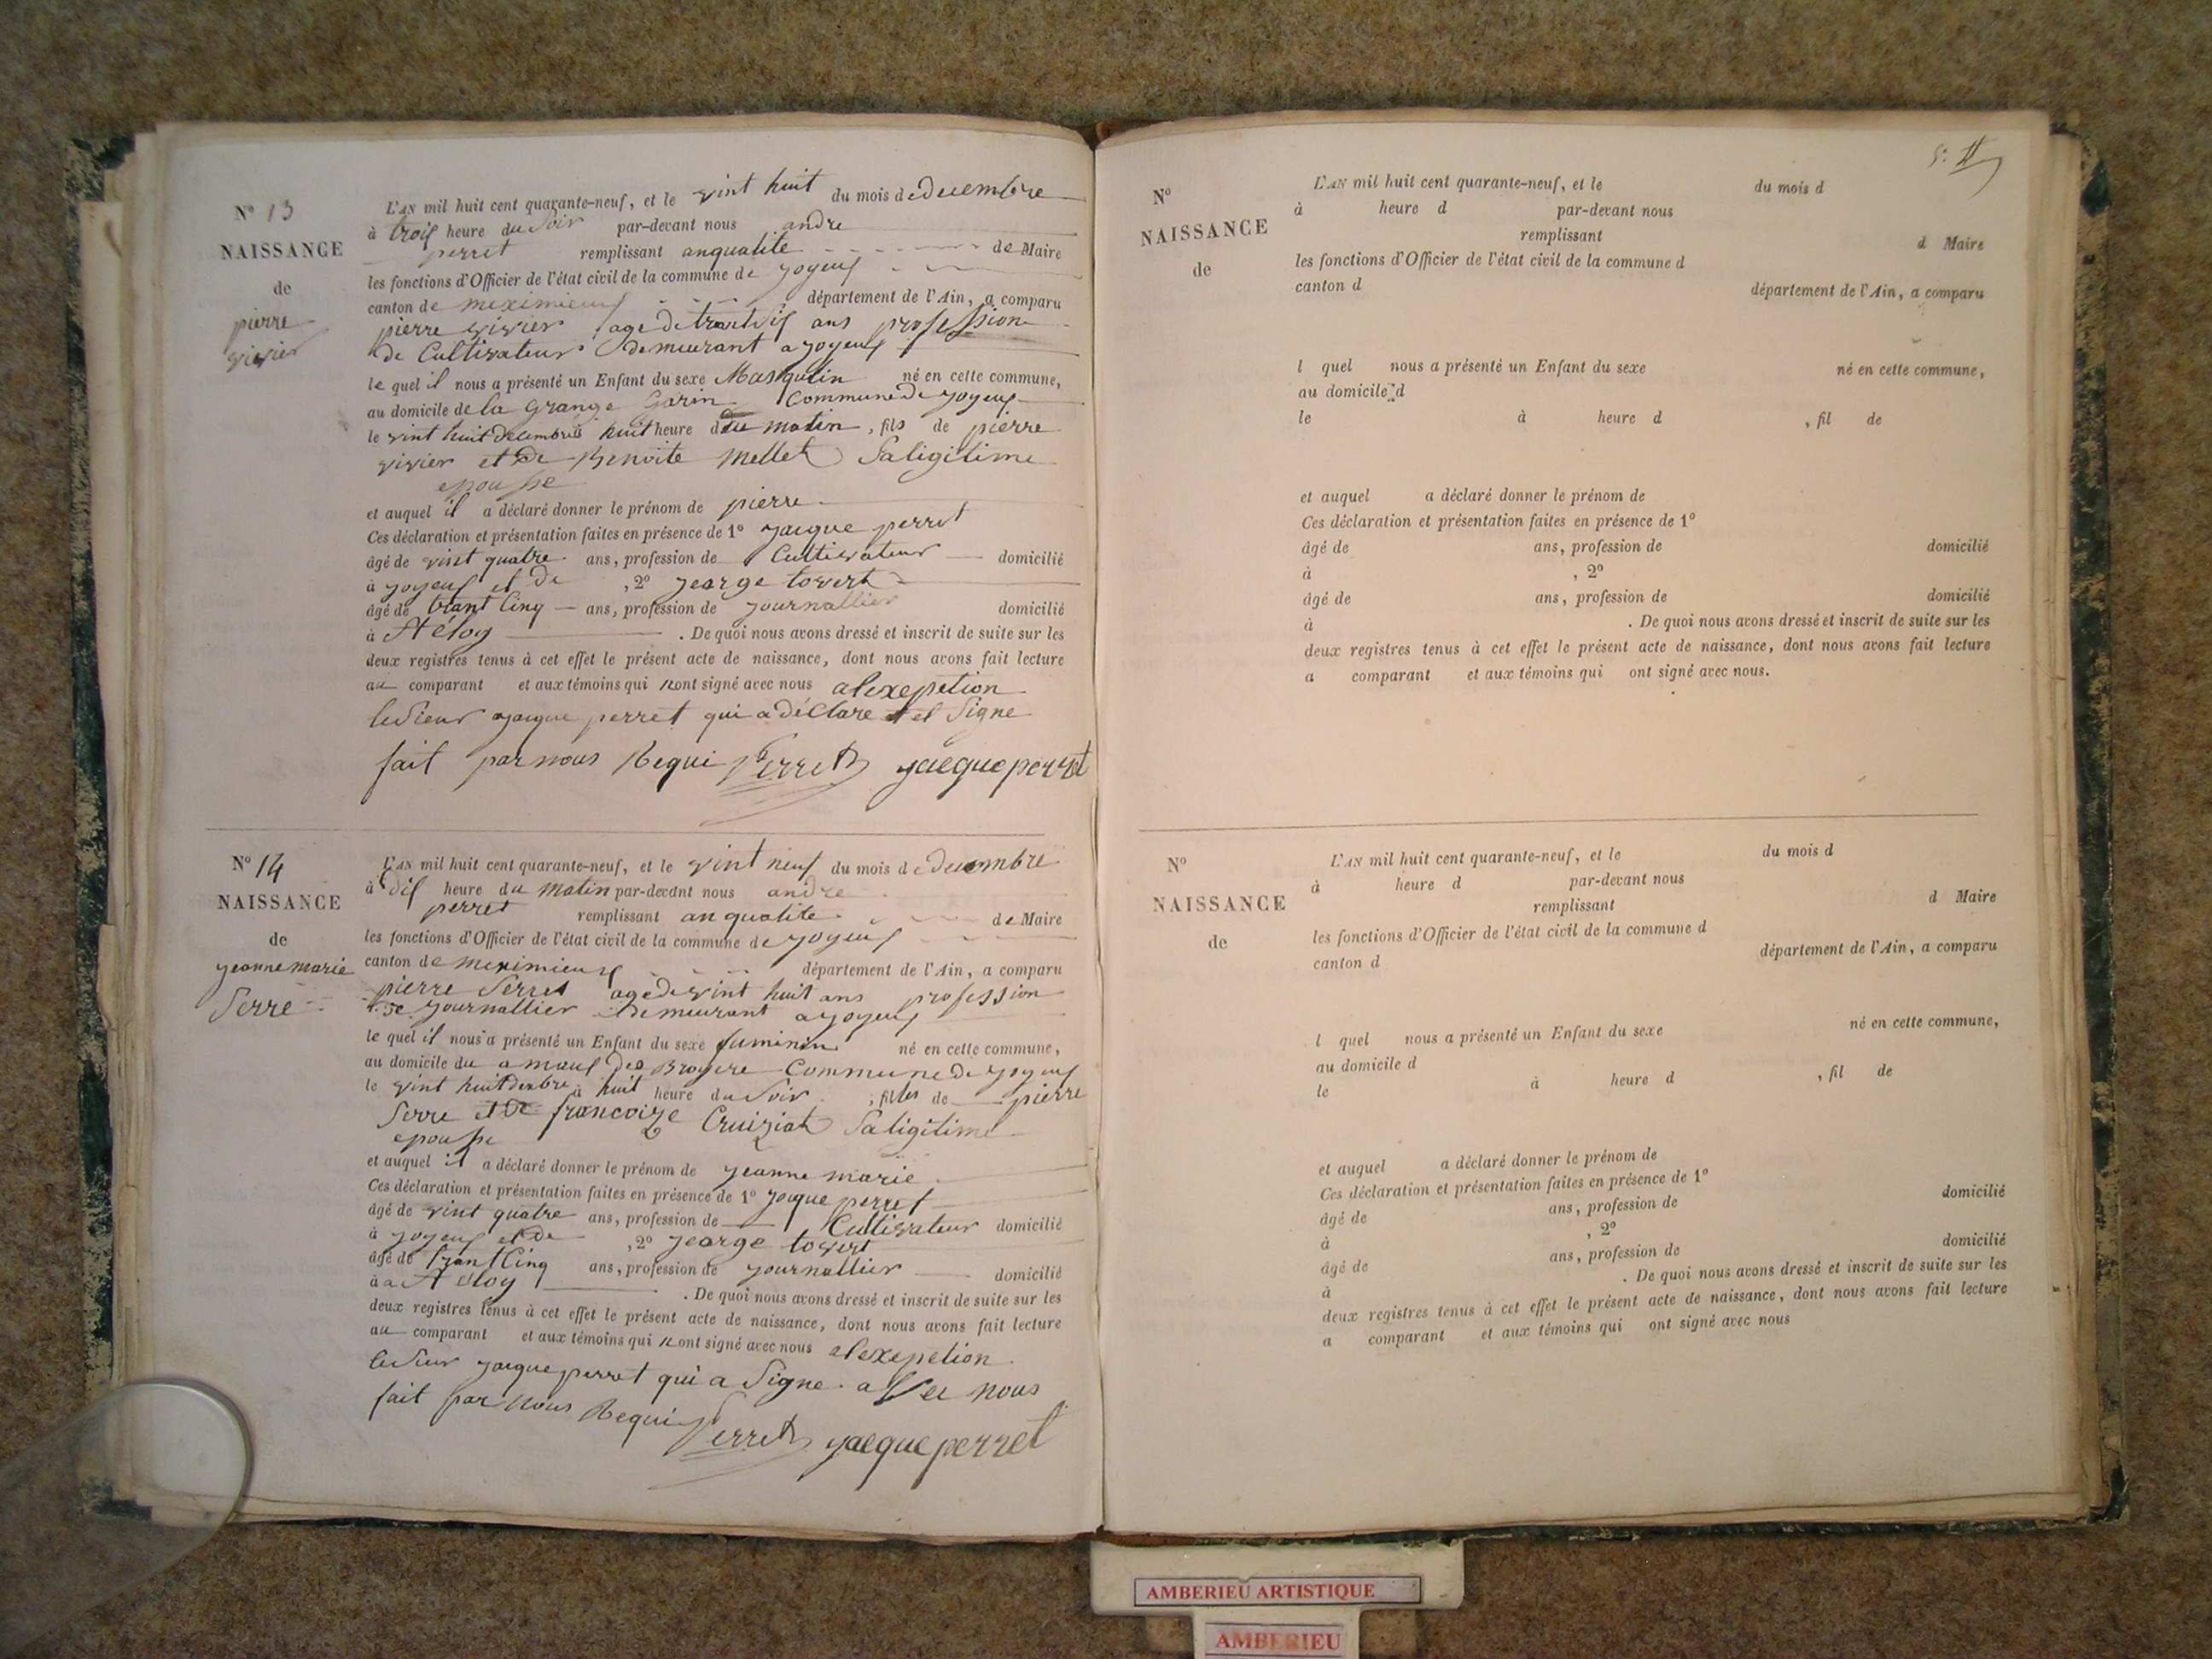 N° 13
NAISSANCE
de
pierre
vivier
L'AN mil huit cent quarante-neuf, et le vint huit du mois de decembre
à trois heure du Soir par-devant nous andre
perret remplissant anqualite de Maire
les fonctions d'Officier de l'état civil de la commune de joyeux
canton de meximieux département de l'Ain, a comparu
pierre vivier age de trantsix ans profession
de Cultivateur demeurant a joyeux
le quel il nous a présenté un Enfant du sexe Masqulin né en cette commune,
au domicile de la grange Garin Commune de joyeux
le vint huit decembre à huit heure du matin, fils de pierre
vivier et de Benoite Mellet Saligitime
epousse
et auquel il a déclaré donner le prénom de pierre
Ces déclaration et présentation faites en présence de 1° jacque perret
âgé de vint quatre ans, profession de Cultivateur domicilié
à joyeux et de , 2° jearge tovert
âgé de trant Cinq ans, profession de journallier domicilié
à St éloy . De quoi nous avons dressé et inscrit de suite sur les
deux registres tenus à cet effet le présent acte de naissance, dont nous avons fait lecture
au comparant et aux témoins qui nont signé avec nous alexepetion
le Sieur jacque perret qui a déclare et Signe
fait par nous Requi Perret jacque perret
N° 14
NAISSANCE
de
jeanne marie
Serre
L'AN mil huit cent quarante-neuf, et le vint neuf du mois de decembre
à dix heure du matin par-devant nous andre
perret remplissant an qualite de Maire
les fonctions d'Officier de l'état civil de la commune de joyeux
canton de meximieux département de l'Ain, a comparu
pierre Serre age de vint huit ans profession
de journallier demeurant a joyeux
le quel il nous a présenté un Enfant du sexe feminin né en cette commune,
au domicile du a maus des Broyere Commune de joyeux
le vint huit à huit heure du Soir, filles de pierre
Serre et de francoize Cruiziat Saligitime
epousse
et auquel il a déclaré donner le prénom de jeanne marie
Ces déclaration et présentation faites en présence de 1° jacque perret
âgé de vint quatre ans, profession de Cultivateur domicilié
à joyeux et de , 2° jearge tovert
âgé de trant Cinq ans, profession de journallier domicilié
à a St éloy . De quoi nous avons dressé et inscrit de suite sur les
deux registres tenus à cet effet le présent acte de naissance, dont nous avons fait lecture
au comparant et aux témoins qui nont signé avec nous alexepetion
le Sieur jacque perret qui a Signe avec nous
fait par nous Requi Perret jacque perret
N°
NAISSANCE
de
L'AN mil huit cent quarante-neuf, et le du mois d
à heure d par-devant nous
remplissant d Maire
les fonctions d'Officier de l'état civil de la commune d
canton d département de l'Ain, a comparu
l quel nous a présenté un Enfant du sexe né en cette commune,
au domicile d
le à heure d , fil de
et auquel a déclaré donner le prénom de
Ces déclaration et présentation faites en présence de 1°
âgé de ans, profession de domicilié
à , 2°
âgé de ans, profession de domicilié
à . De quoi nous avons dressé et inscrit de suite sur les
deux registres tenus à cet effet le présent acte de naissance, dont nous avons fait lecture
a comparant et aux témoins qui ont signé avec nous.
N°
NAISSANCE
de
L'AN mil huit cent quarante-neuf, et le du mois d
à heure d par-devant nous
remplissant d Maire
les fonctions d'Officier de l'état civil de la commune d
canton d département de l'Ain, a comparu
l quel nous a présenté un Enfant du sexe né en cette commune,
au domicile d
le à heure d , fil de
et auquel a déclaré donner le prénom de
Ces déclaration et présentation faites en présence de 1°
âgé de ans, profession de domicilié
à , 2°
âgé de ans, profession de domicilié
à . De quoi nous avons dressé et inscrit de suite sur les
deux registres tenus à cet effet le présent acte de naissance, dont nous avons fait lecture
a comparant et aux témoins qui ont signé avec nous
AMBERIEU ARTISTIQUE
AMBERIEU